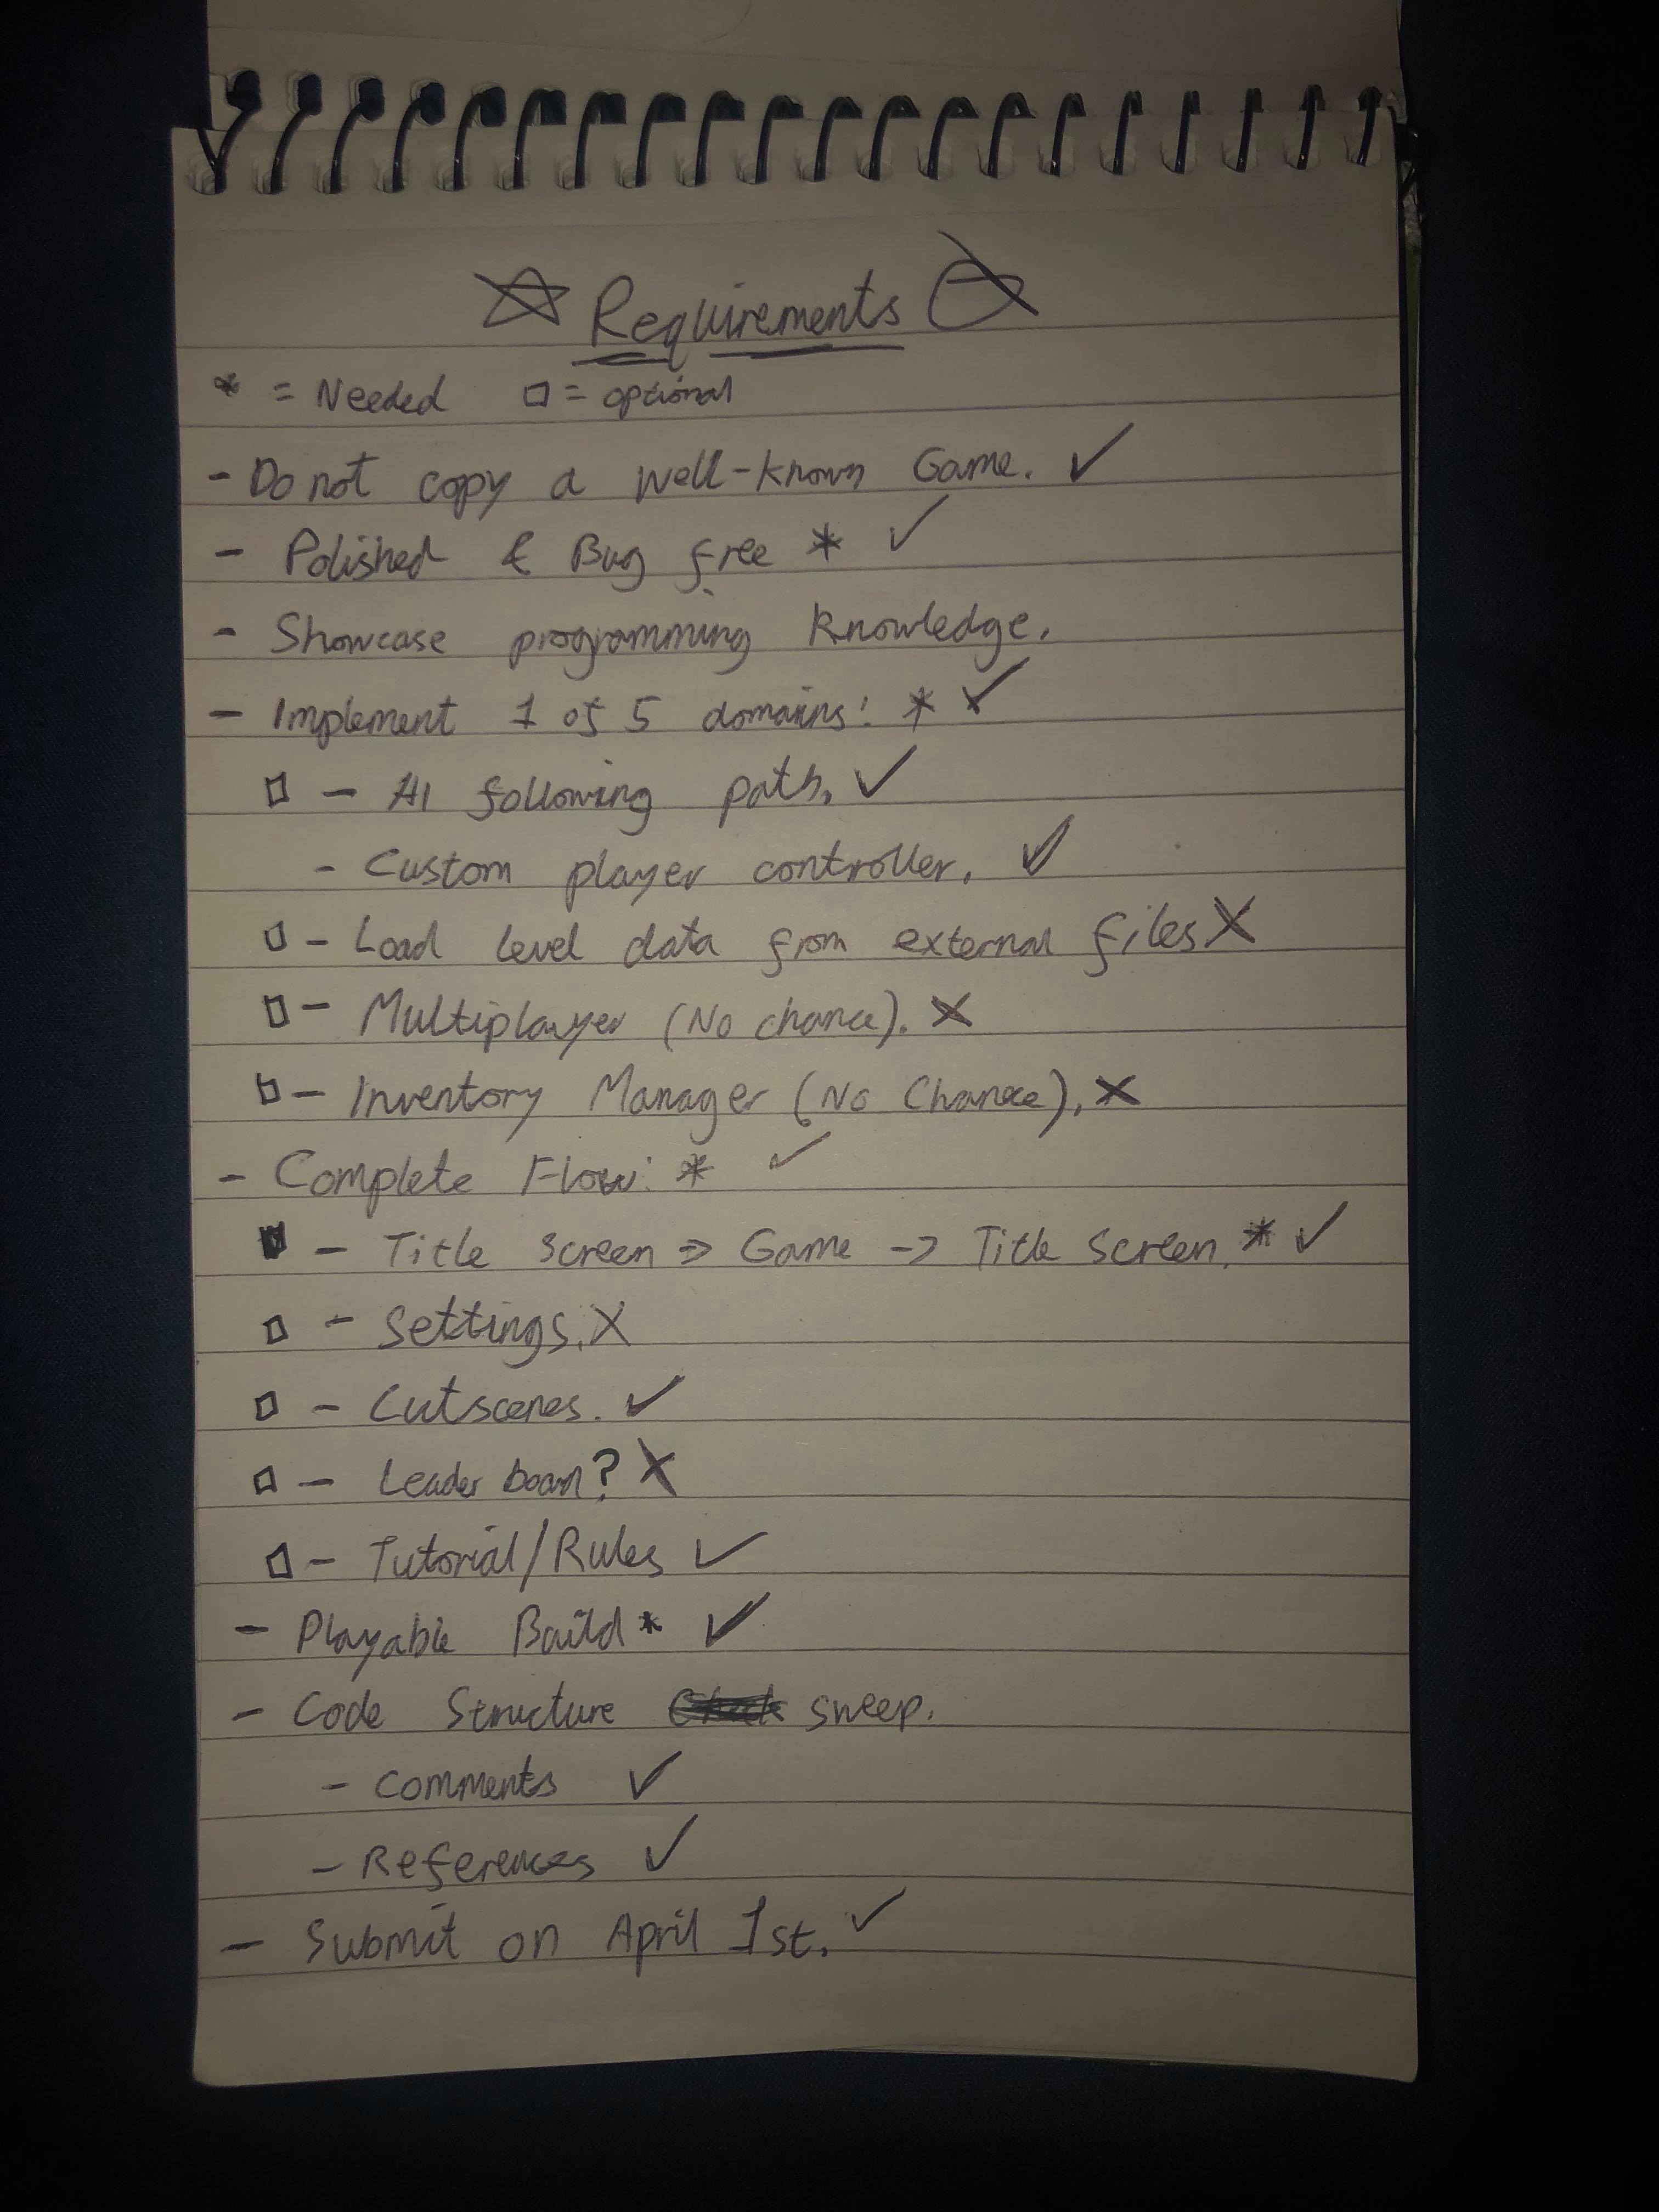 ☆ Requirements
* = Needed □ = optional
- Do not copy a well-known Game. ✓
- Polished & Bug free * ✓
- Showcase programming knowledge.
- Implement 1 of 5 domains: * ✓
□ - AI following path. ✓
- Custom player controller. ✓
□ - Load level data from external files X
□ - Multiplayer (No chance). X
□ - Inventory Manager (No Chance). X
- Complete Flow: * ✓
■ - Title screen => Game -> Title screen. * ✓
□ - Settings. X
□ - Cutscenes. ✓
□ - Leader board? X
□ - Tutorial/Rules ✓
- Playable Build * ✓
- Code Structure sweep.
- Comments ✓
- References ✓
- Submit on April 1st. ✓